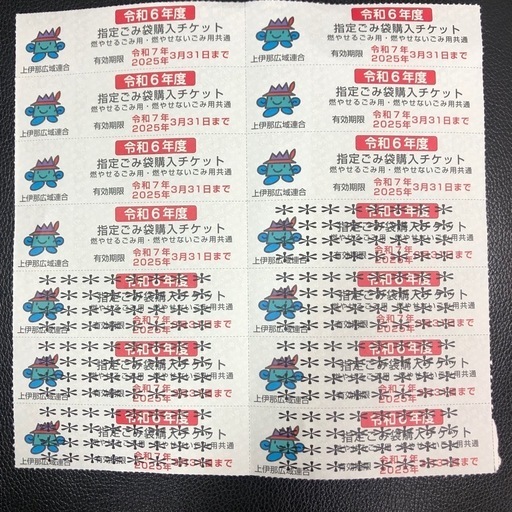 令和6年度
指定ごみ袋購入チケット
燃やせるごみ用・燃やせないごみ用共通
令和7年
有効期限 2025年3月31日まで
上伊那広域連合
令和6年度
指定ごみ袋購入チケット
燃やせるごみ用・燃やせないごみ用共通
令和7年
有効期限 2025年3月31日まで
上伊那広域連合
令和6年度
指定ごみ袋購入チケット
燃やせるごみ用・燃やせないごみ用共通
令和7年
有効期限 2025年3月31日まで
上伊那広域連合
令和6年度
指定ごみ袋購入チケット
燃やせるごみ用・燃やせないごみ用共通
令和7年
有効期限 2025年3月31日まで
上伊那広域連合
令和6年度
指定ごみ袋購入チケット
燃やせるごみ用・燃やせないごみ用共通
令和7年
有効期限 2025年3月31日まで
上伊那広域連合
令和6年度
指定ごみ袋購入チケット
燃やせるごみ用・燃やせないごみ用共通
令和7年
有効期限 2025年3月31日まで
上伊那広域連合
令和6年度
指定ごみ袋購入チケット
燃やせるごみ用・燃やせないごみ用共通
令和7年
有効期限 2025年3月31日まで
上伊那広域連合
令和6年度
指定ごみ袋購入チケット
令和7年
2025年
上伊那広域連合
指定ごみ袋購入チケット
令和7年
2025年
上伊那広域連合
指定ごみ袋購入チケット
令和7年
2025年
上伊那広域連合
指定ごみ袋購入チケット
令和7年
2025年
上伊那広域連合
指定ごみ袋購入チケット
令和7年
2025年
上伊那広域連合
指定ごみ袋購入チケット
令和7年
2025年
上伊那広域連合
指定ごみ袋購入チケット
令和7年
2025年
上伊那広域連合